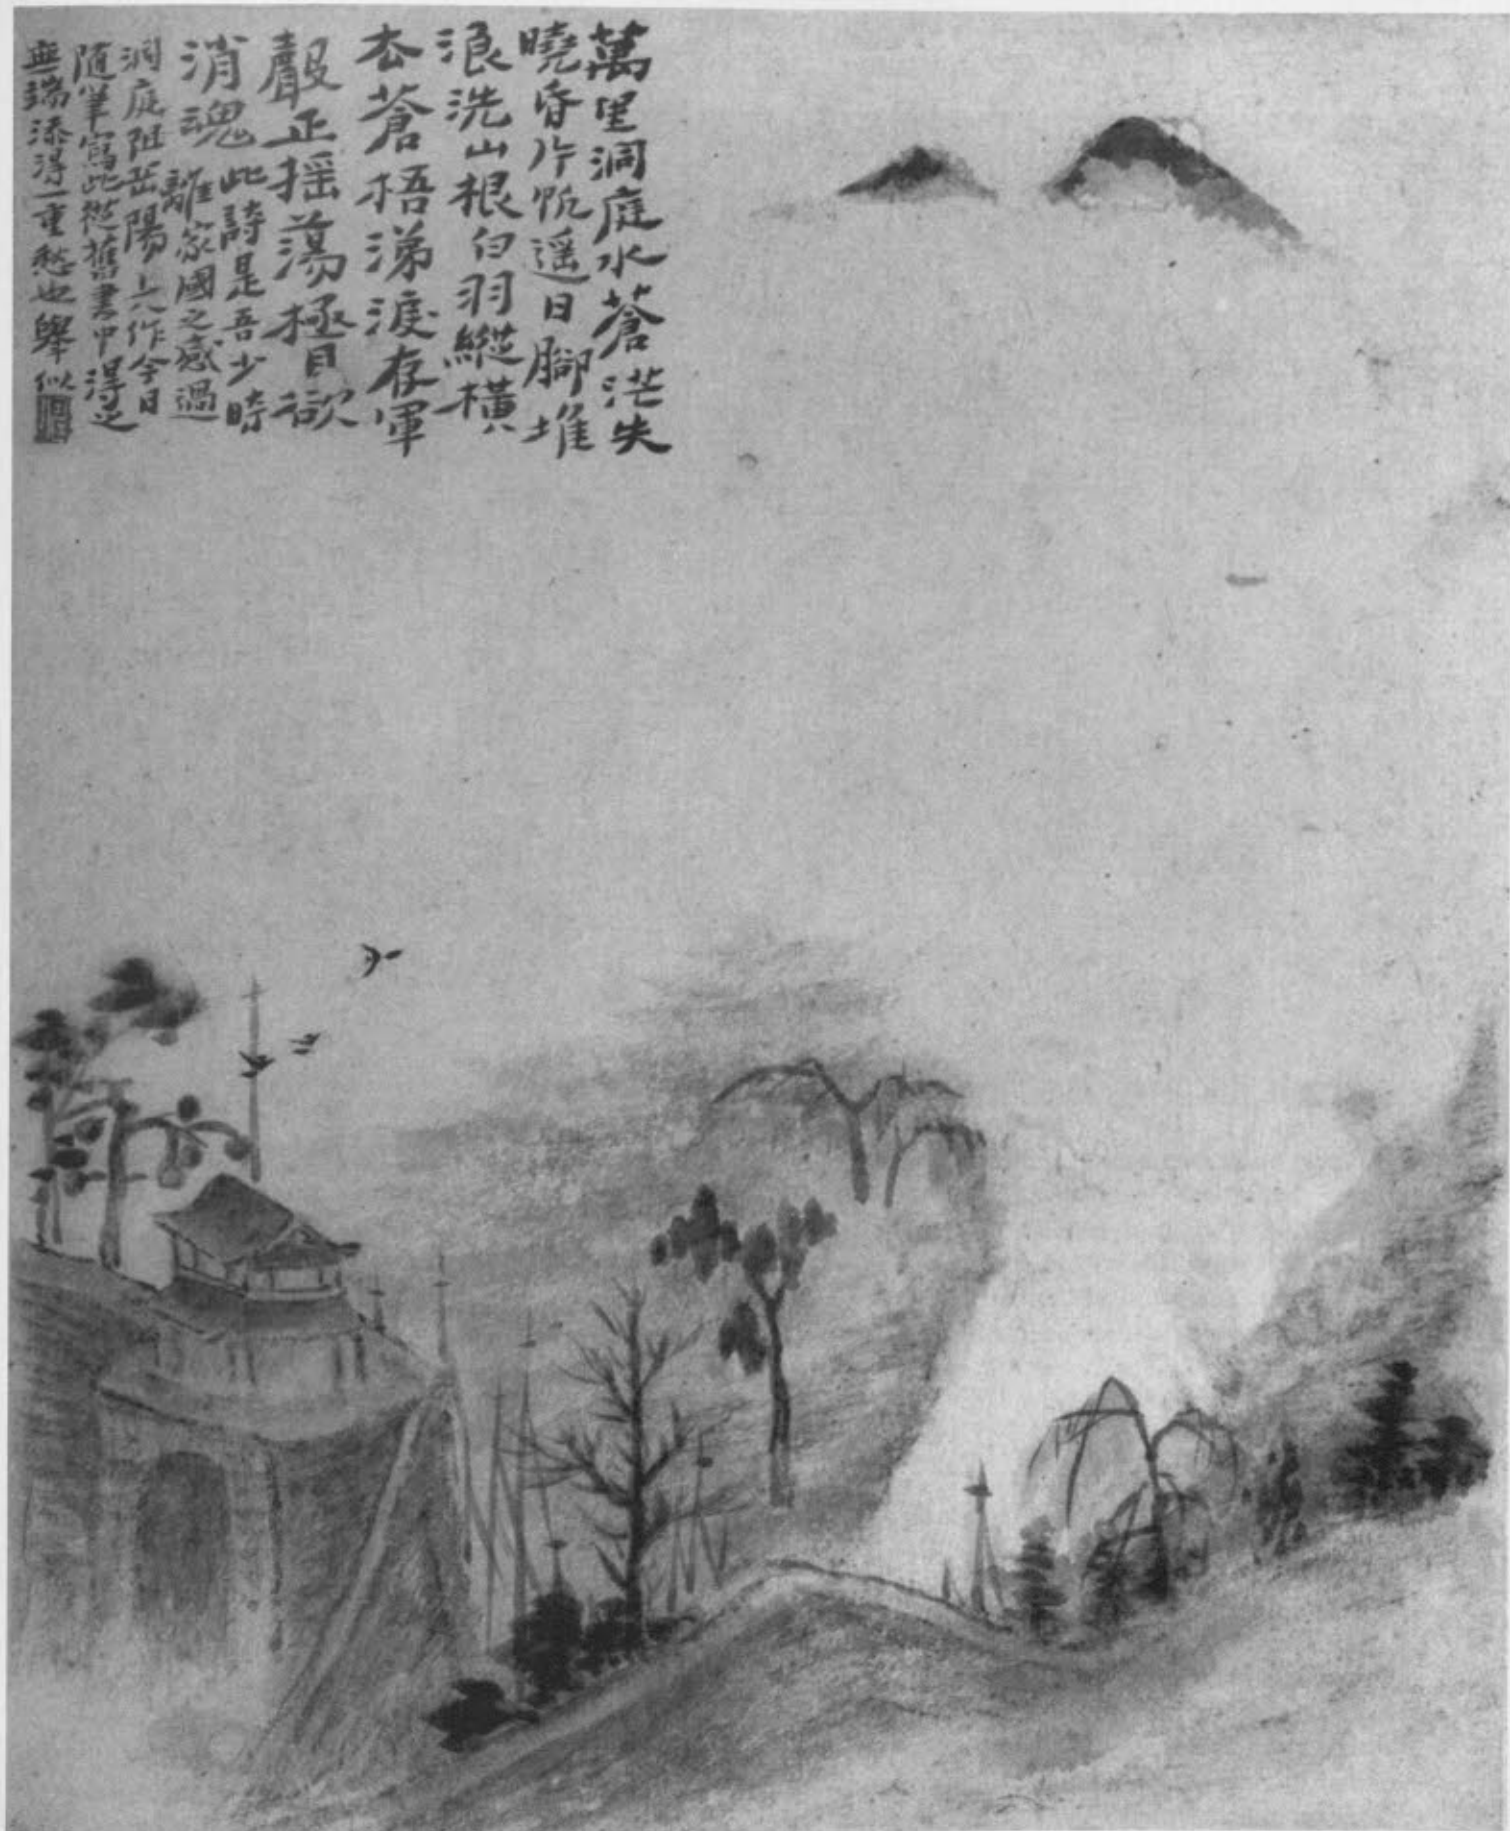 萬里洞庭水蒼茫失
曉昏片帆遥日腳堆
浪洗山根白羽縱橫
去蒼梧涕淚存軍
聲正摇蕩極目欲
消魂此詩是吾少時
離家國之感過
洞庭阻岳陽之作今日
随筆寫此從舊書中得之
無端添得一重愁也舉似